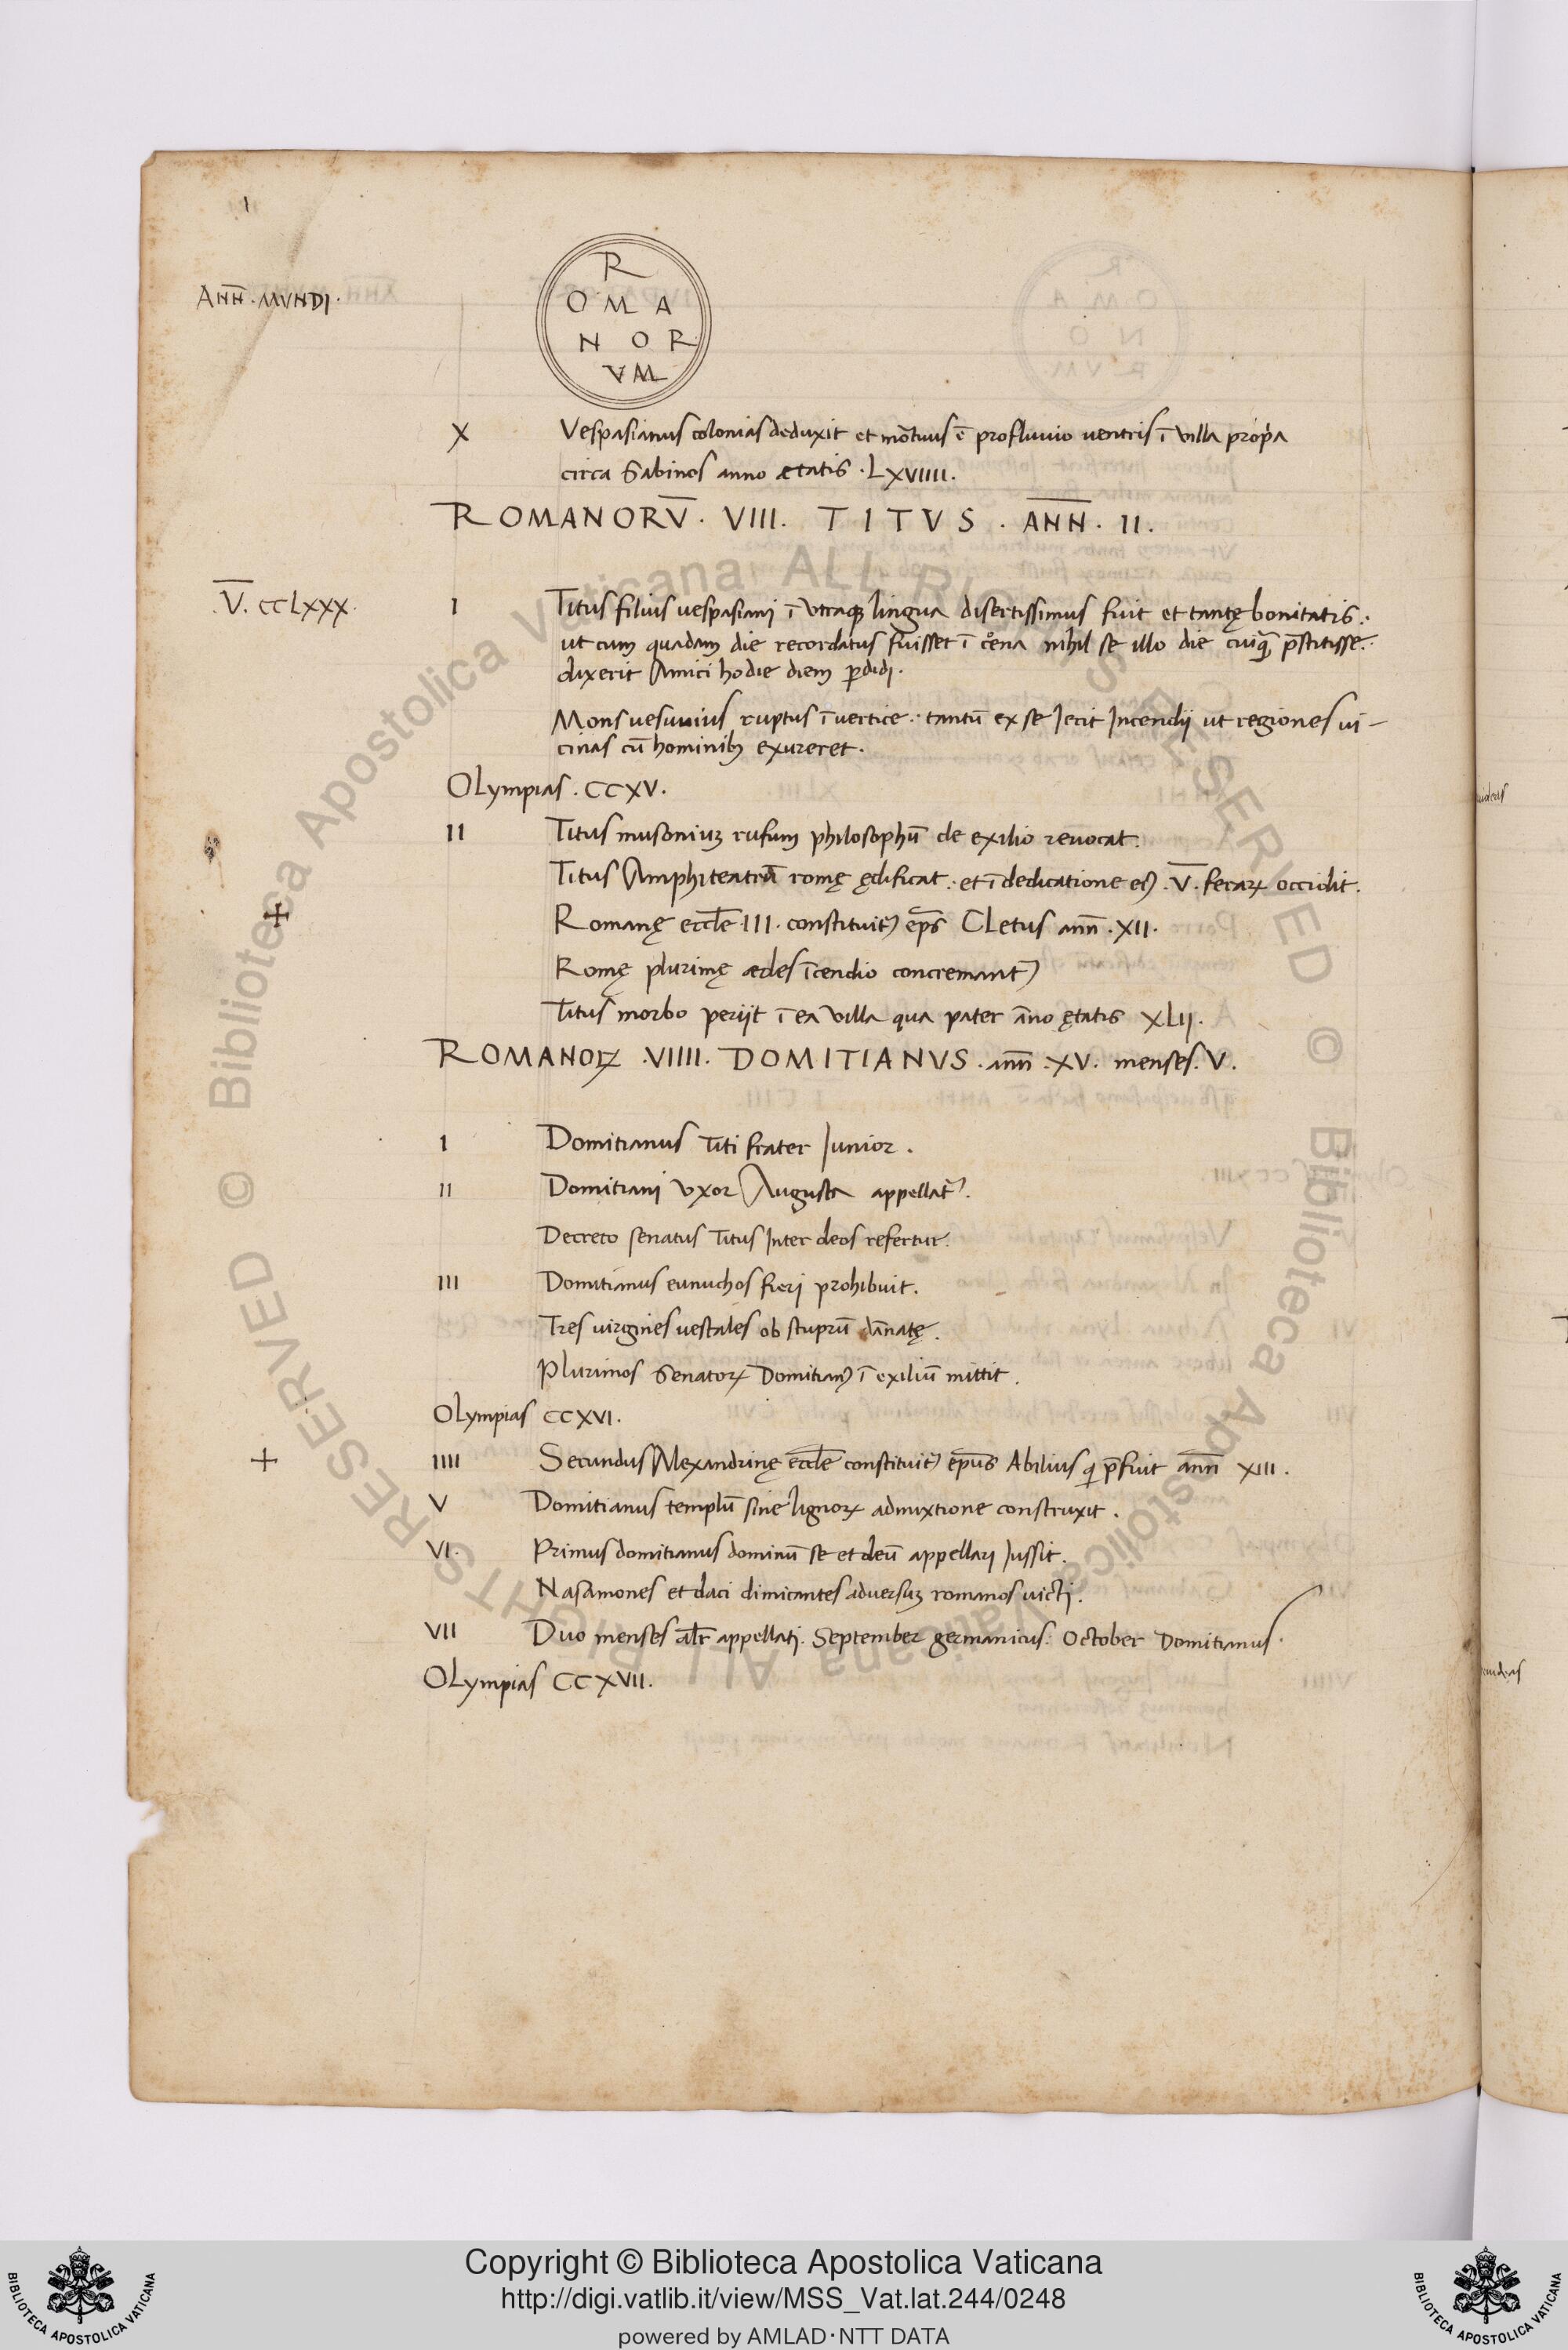 1
ANN̅. MVNDI.
R
OMA
NOR
VM
X Vespasianus colonias deduxit et mõtuus ẽ profluuio uentris ĩ uilla propa
circa Sabinos anno ætatis . LXVIIII.
ROMANORV̅. VIII. TITVS . ANN̅. II.
.V̅. CCLXXX. I Titus filius uespasiani ĩ utraqꝫ lingua disertissimus fuit et tantę bonitatis:
ut cum quadam die recordatus fuisset ĩ cena nihil se illo die cuiqͣ p̅stitisse:
dixerit Amici hodie diem ꝑdidi.
Mons uesuuius ruptus ĩ uertice: tantũ ex se Iecit Incendij ut regiones ui-
cinas cũ hominibꝫ exureret.
OLympias . CCXV.
II Titus musoniuꝫ rufum philosophũ de exilio reuocat.
Titus Amphiteatrũ romę ędificat: et ĩ dedicatione eiꝰ .V̅. feraꝝ occidit.
+ Romanę eccl̅e III. constituit᷑ ep̅s CLetus ann̅ .XII.
Romę plurimę ædes ĩcendio concremant᷑
Titus morbo perijt ĩ ea uilla qua pater ãno ętatis XLII.
ROMANOꝜ .VIIII. DOMITIANVS . ann̅ .XV. menses. V.
I Domitianus Titi frater Iunior.
II Domitiani Vxor Augusta appellat᷑.
Decreto senatus Titus Inter deos refertur.
III Domitianus eunuchos fieri prohibuit.
Tres uirgines uestales ob stuprũ dãnatę.
Plurimos Senatoꝝ Domitianꝰ ĩ exiliũ mittit.
OLympias CCXVI.
+ IIII Secundus Alexandrinę eccl̅e constituit᷑ ep̅us Abilius q̇ p̅fuit ann̅ XIII.
V Domitianus templũ sine lignoꝝ admixtione construxit.
VI. Primus domitianus dominũ se et deũ appellari Iussit.
Nasamones et daci dimicantes aduersuꝫ romanos uicti.
VII Duo menses alr̅ appellati. September germanicus: October Domitianus.
OLympias CCXVII.
Biblioteca Apostolica Vaticana ALL RIGHTS RESERVED © Biblioteca Apostolica Vaticana ALL RIGHTS RESERVED ©
Copyright © Biblioteca Apostolica Vaticana
http://digi.vatlib.it/view/MSS_Vat.lat.244/0248
powered by AMLAD·NTT DATA
BIBLIOTECA APOSTOLICA VATICANA
BIBLIOTECA APOSTOLICA VATICANA